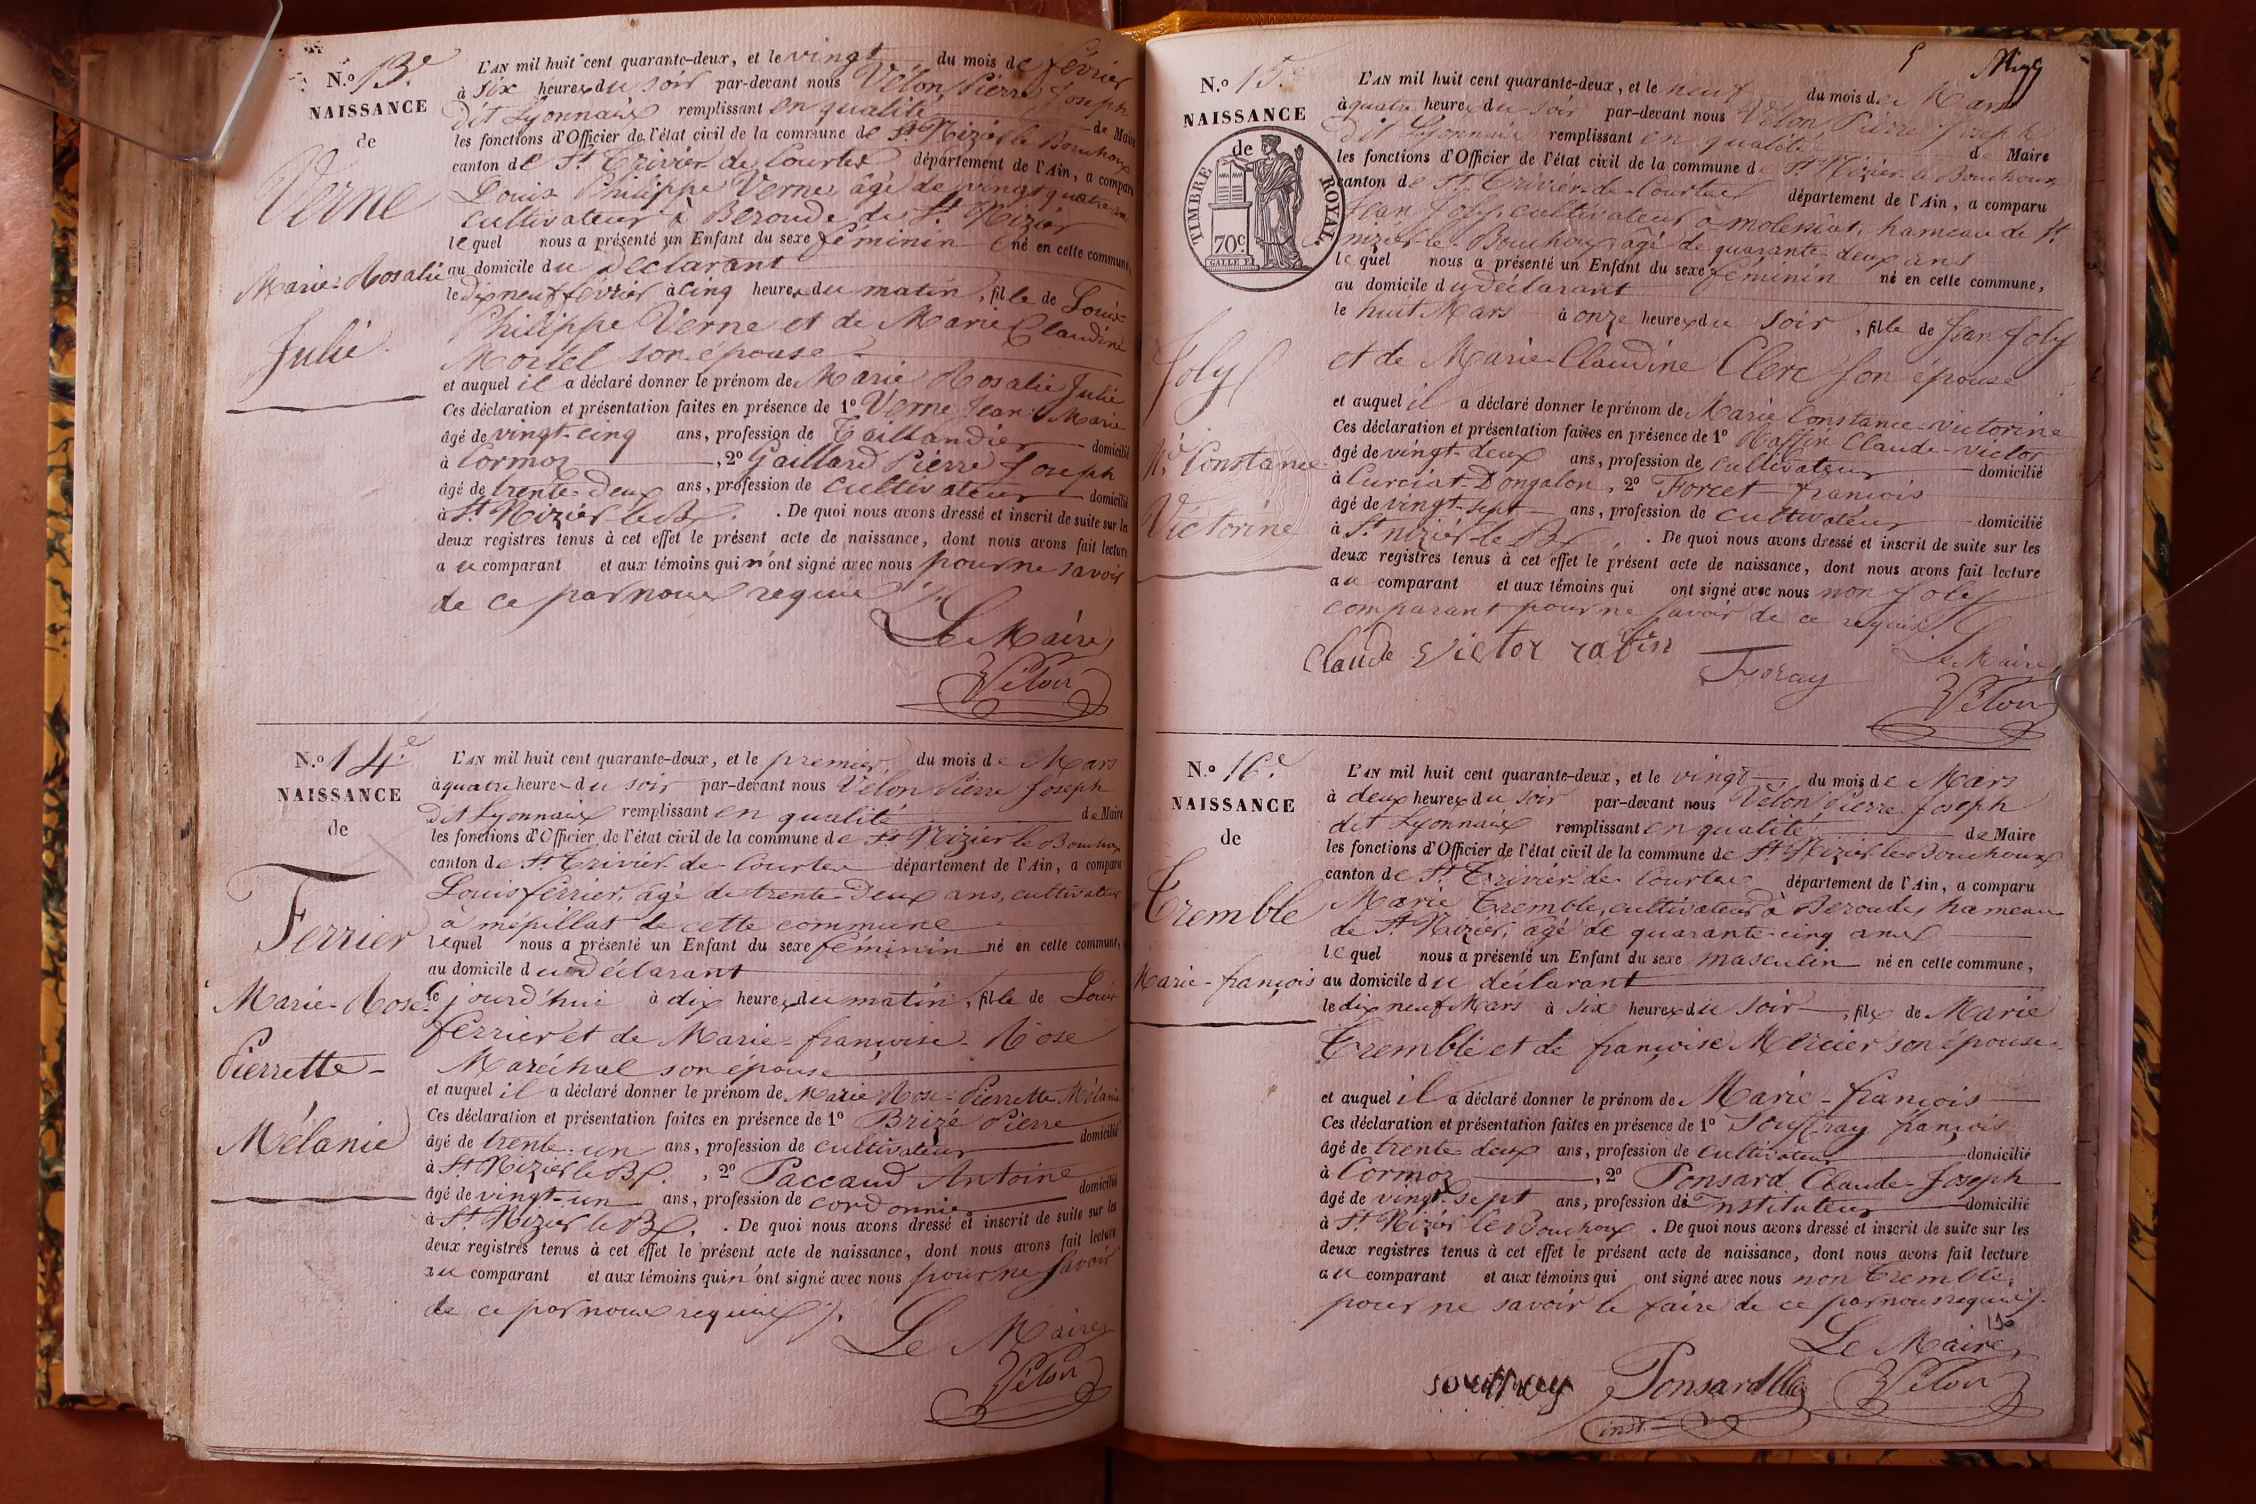 N.º 13.e
NAISSANCE
de
Verne
Marie-Rosalie
Julie
L'AN mil huit cent quarante-deux, et le vingt du mois de février
à six heures du soir par-devant nous Vélon Pierre Joseph
dit Lyonnais remplissant en qualité de Maire
les fonctions d'Officier de l'état civil de la commune de St Nizier le Bouchoux
canton de St Trivier de Courtes département de l'Ain, a comparu
Louis Philippe Verne âgé de vingt quatre ans
cultivateur à Beroude de St Nizier
lequel nous a présenté un Enfant du sexe féminin né en cette commune,
au domicile du déclarant
le dix neuf février à cinq heures du matin, fille de Louis
Philippe Verne et de Marie Claudine
Mortel son épouse
et auquel il a déclaré donner le prénom de Marie Rosalie Julie
Ces déclaration et présentation faites en présence de 1º Verne Jean Marie
âgé de vingt-cinq ans, profession de Taillandier domicilié
à Cormoz, 2º Gaillard Pierre Joseph
âgé de trente-deux ans, profession de cultivateur domicilié
à St Nizier le Bx. De quoi nous avons dressé et inscrit de suite sur les
deux registres tenus à cet effet le présent acte de naissance, dont nous avons fait lecture
au comparant et aux témoins qui n'ont signé avec nous pour ne savoir
de ce par nous requis
Le Maire
Vélon
N.º 14.e
NAISSANCE
de
Ferrier
Marie-Rose
Pierrette-
Mélanie
L'AN mil huit cent quarante-deux, et le premier du mois de Mars
à quatre heures du soir par-devant nous Vélon Pierre Joseph
dit Lyonnais remplissant en qualité de Maire
les fonctions d'Officier de l'état civil de la commune de St Nizier le Bouchoux
canton de St Trivier de Courtes département de l'Ain, a comparu
Louis ferrier, âgé de trente-deux ans, cultivateur
à mépillat de cette commune
lequel nous a présenté un Enfant du sexe féminin né en cette commune,
au domicile du déclarant
le jourd'hui à dix heures du matin, fille de Louis
ferrier et de Marie-françoise-Rose
Maréchal son épouse
et auquel il a déclaré donner le prénom de Marie Rose-Pierrette Mélanie
Ces déclaration et présentation faites en présence de 1º Brizé Pierre
âgé de trente-un ans, profession de cultivateur domicilié
à St Nizier le Bx, 2º Paccaud Antoine
âgé de vingt-un ans, profession de cordonnier domicilié
à St Nizier le Bx. De quoi nous avons dressé et inscrit de suite sur les
deux registres tenus à cet effet le présent acte de naissance, dont nous avons fait lecture
au comparant et aux témoins qui n'ont signé avec nous pour ne savoir
de ce par nous requis
Le Maire
Vélon
5
N.º 15.e
NAISSANCE
de
TIMBRE ROYAL.
70c
GALLE F.
Joly
Mie Constance
Victorine
L'AN mil huit cent quarante-deux, et le neuf du mois de Mars
à quatre heures du soir par-devant nous Vélon Pierre Joseph
dit Lyonnais remplissant en qualité de Maire
les fonctions d'Officier de l'état civil de la commune de St Nizier le Bouchoux
canton de St Trivier de Courtes département de l'Ain, a comparu
Jean Joly, cultivateur à molessiat, hameau de St
nizier-le-Bouchoux, âgé de quarante-deux ans
lequel nous a présenté un Enfant du sexe féminin né en cette commune,
au domicile du déclarant
le huit Mars à onze heures du soir, fille de Jean Joly
et de Marie-Claudine Clerc son épouse
et auquel il a déclaré donner le prénom de Marie Constance-victorine
Ces déclaration et présentation faites en présence de 1º Raffin Claude-victor
âgé de vingt-deux ans, profession de cultivateur domicilié
à Curciat-Dongalon, 2º françois
âgé de vingt-sept ans, profession de cultivateur domicilié
à St nizier le Bx. De quoi nous avons dressé et inscrit de suite sur les
deux registres tenus à cet effet le présent acte de naissance, dont nous avons fait lecture
au comparant et aux témoins qui ont signé avec nous non Joly
comparant pour ne savoir de ce requis
Le Maire
Claude victor rafin Foray Vélon
N.º 16.e
NAISSANCE
de
Tremble
Marie-françois
L'AN mil huit cent quarante-deux, et le vingt du mois de Mars
à deux heures du soir par-devant nous Vélon Pierre Joseph
dit Lyonnais remplissant en qualité de Maire
les fonctions d'Officier de l'état civil de la commune de St Nizier le Bouchoux
canton de St Trivier de Courtes département de l'Ain, a comparu
Marie Tremble, cultivateur à Beroude, hameau
de St Nizier, âgé de quarante-cinq ans
lequel nous a présenté un Enfant du sexe masculin né en cette commune,
au domicile du déclarant
le dix neuf Mars à six heures du soir, fils de Marie
Tremble et de françoise Mercier son épouse
et auquel il a déclaré donner le prénom de Marie-françois
Ces déclaration et présentation faites en présence de 1º Souffray françois
âgé de trente deux ans, profession de cultivateur domicilié
à Cormoz, 2º Ponsard Claude-Joseph
âgé de vingt sept ans, profession de Instituteur domicilié
à St Nizier le Bouchoux. De quoi nous avons dressé et inscrit de suite sur les
deux registres tenus à cet effet le présent acte de naissance, dont nous avons fait lecture
au comparant et aux témoins qui ont signé avec nous non Tremble,
pour ne savoir le faire de ce par nous requis
Le Maire
souffray Ponsard Vélon
inst.